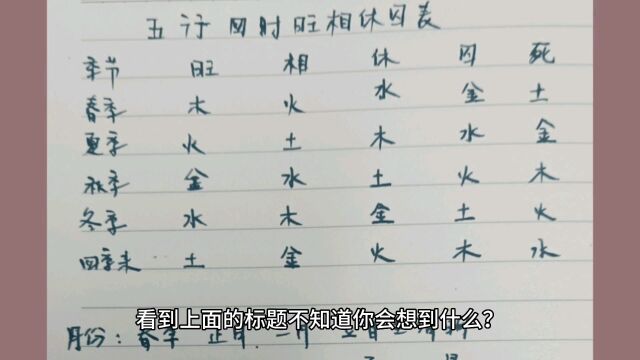 五行四时旺相休囚表
季节 旺 相 休 囚 死
春季 木 火 水 金 土
夏季 火 土 木 水 金
秋季 金 水 土 火 木
冬季 水 木 金 土 火
四季末 土 金 火 木 水
看到上面的标题不知道你会想到什么?
月份: 春季 正月 二月